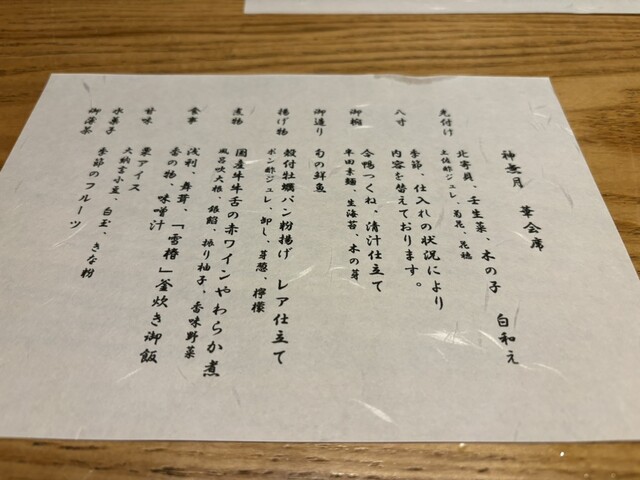 神無月　華会席
先付け　北寄貝、壬生菜、木の子　白和え
土佐酢ジュレ、菊花、花穂
八寸　季節、仕入れの状況により
内容を替えております。
御椀　合鴨つくね、清汁仕立て
半田素麺、生海苔、木の芽
御造り　旬の鮮魚
揚げ物　殻付牡蠣パン粉揚げ　レア仕立て
ポン酢ジュレ、卸し、芽葱、檸檬
煮物　国産牛牛舌の赤ワインやわらか煮
風呂吹大根、銀餡、振り柚子、香味野菜
食事　浅利、舞茸、「雪椿」釜炊き御飯
香の物、味噌汁
甘味　栗アイス
大納言小豆、白玉、きな粉
水菓子　季節のフルーツ
御薄茶